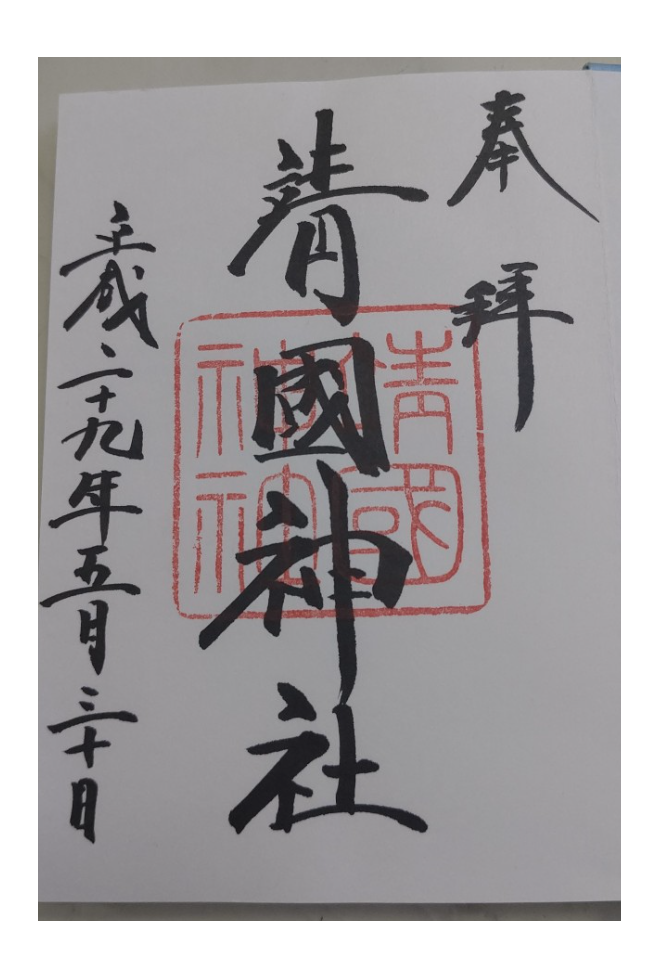 奉拝
靖國神社
平成二十九年五月三十日
靖國
神社